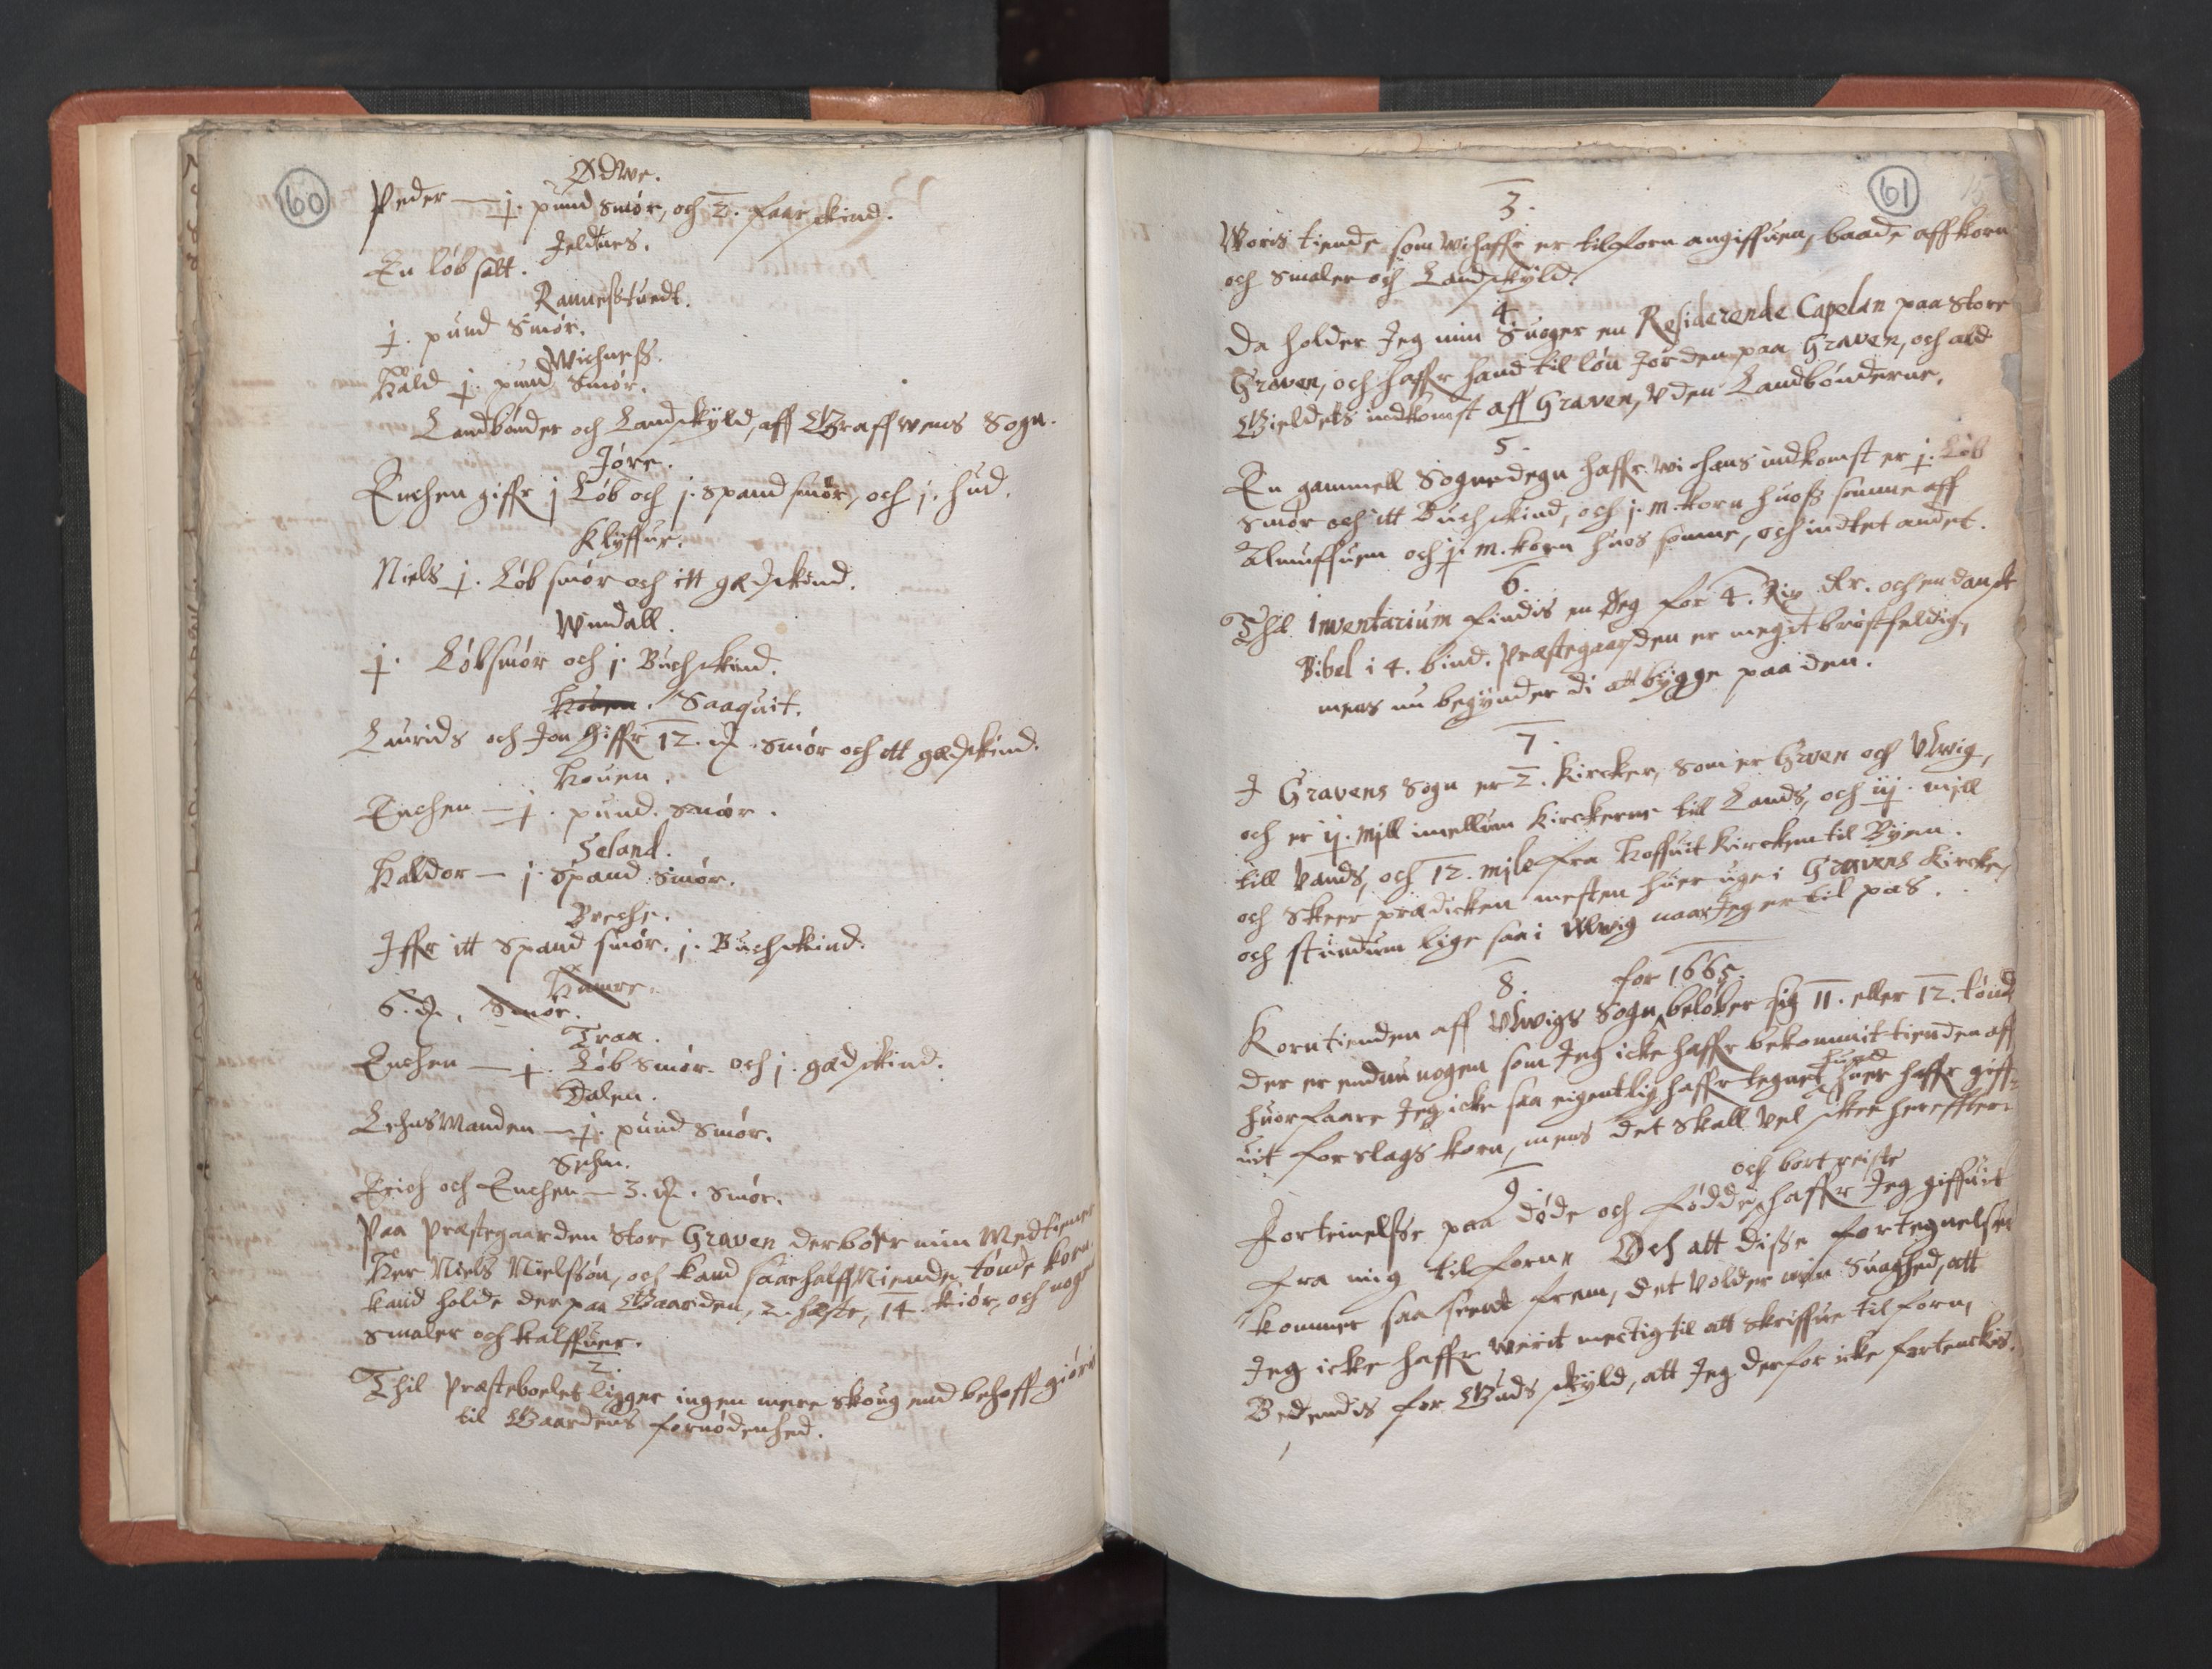 60
Ødwe.
Peder — j. pund smør, och 2. faarskind.
Jeldnes.
En løb salt.
Rannestuedt.
j. pund smør.
Wichness.
Hald j. pund smør.
Landbønder och Landskyld, aff Graffwens Sogn.
Jøre.
Enchen giffr j Løb och j. spand smør, och j. hud.
Klyffue.
Niels j. Løb smør och itt gædskind.
Windall.
j. Løb smør och j. Buchskind.
Houen. Saaquit.
Laurids och Jon Giffr 12. smør och itt gædskind.
Houen.
Enchen — j. pund. smør.
Seland.
Haldor — j. spand smør.
Breche.
Iffr itt spand smør. j. Buchskind.
Hamre.
6. Smør.
Traa.
Enchen — j. Løb smør och j. gædskind.
Dalen.
Lehnsmanden — j. pund smør.
Erich och Enchen — 3. smør.
Paa Præstegaarden Store Graven der boer min Medtiener
Her Niels Nielssøn, och kand saae halff Niende tønde korn
kand holde der paa Gaarden, 2 hæste, 14 kiør, och nogen
smaler och kalffuer.
2.
Thil Præsteboelet ligger ingen mere skoug end behoff giøris
til Gaardens fornødenhed.
61
3.
Woris tiende som wi haffr er tilforn angiffuen, baade aff korn
och smaler och Landskyld.
4.
Da holder Jeg min Suoger en Residerende Capelan paa Store
Graven, och haffr hand til løn Jorden paa Graven, och ald
Gieldets indkomst aff Graven, Uden Landbønderne.
5.
En gammell Sognedegn haffr wi hans indkomst er j. Løb
smør och itt Buchskind, och j. m. korn huoss somme aff
Almuffuen och j. m. korn huos somme, och indtet andet.
6.
Thil Inventarium findis en Seg for 4. Rix dr. och en dansk
Bibel i 4. bind. Præstegaarden er meget brøstfeldig,
mens nu begynder di at bygge paa den.
7.
I Gravens Sogn er 2. Kircker, som er Graven och Ulwig,
och er ij. mjll imellum Kirckerne till Lands, och iij. mjll
till Vands, och 12. mjle fra Hoffuit Kircken til Byen.
och skeer prædicken mesten huer uge i Gravens Kircke,
och stundum lige saa i Ulwig naar Jeg er til pas.
8. for 1665.
Korntienden aff Ulwigs Sogn beløber sig 11. eller 12. tønd
der er endnu nogen som Jeg icke haffr bekommit tienden aff
huorfaare Jeg icke saa eigentlig haffr tegnet huad huer haffr giff-
uit for slags korn, mens det skall vel skee hereffter.
9
och bortreiste
Forteinelsse paa døde och fødde haffr Jeg giffuit
fra mig tilforne Och att disse fortegnelser
kommer saa seent frem, det volder min Suaghed, att
Jeg icke haffr werit mectig til att skriffue tilforn,
Bedendis for Guds skyld, att Jeg derfor icke fortenckis.